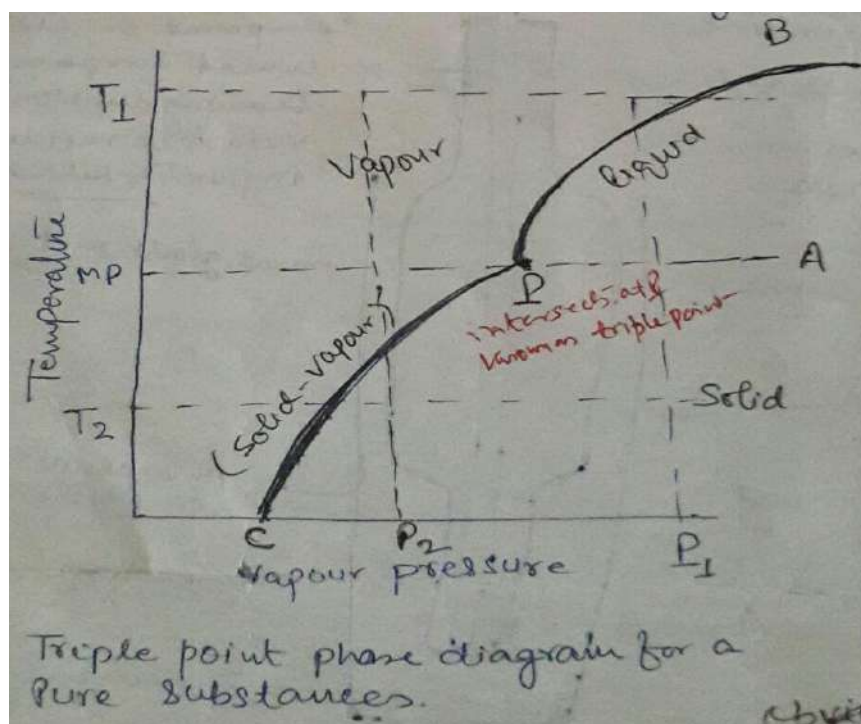 B
T1
Vapour
Liquid
Temperature
MP
P
A
intersects at P
known as triple point
(Solid-vapour)
T2
Solid
C
P2
P1
Vapour pressure
Triple point phase diagram for a
Pure substances.